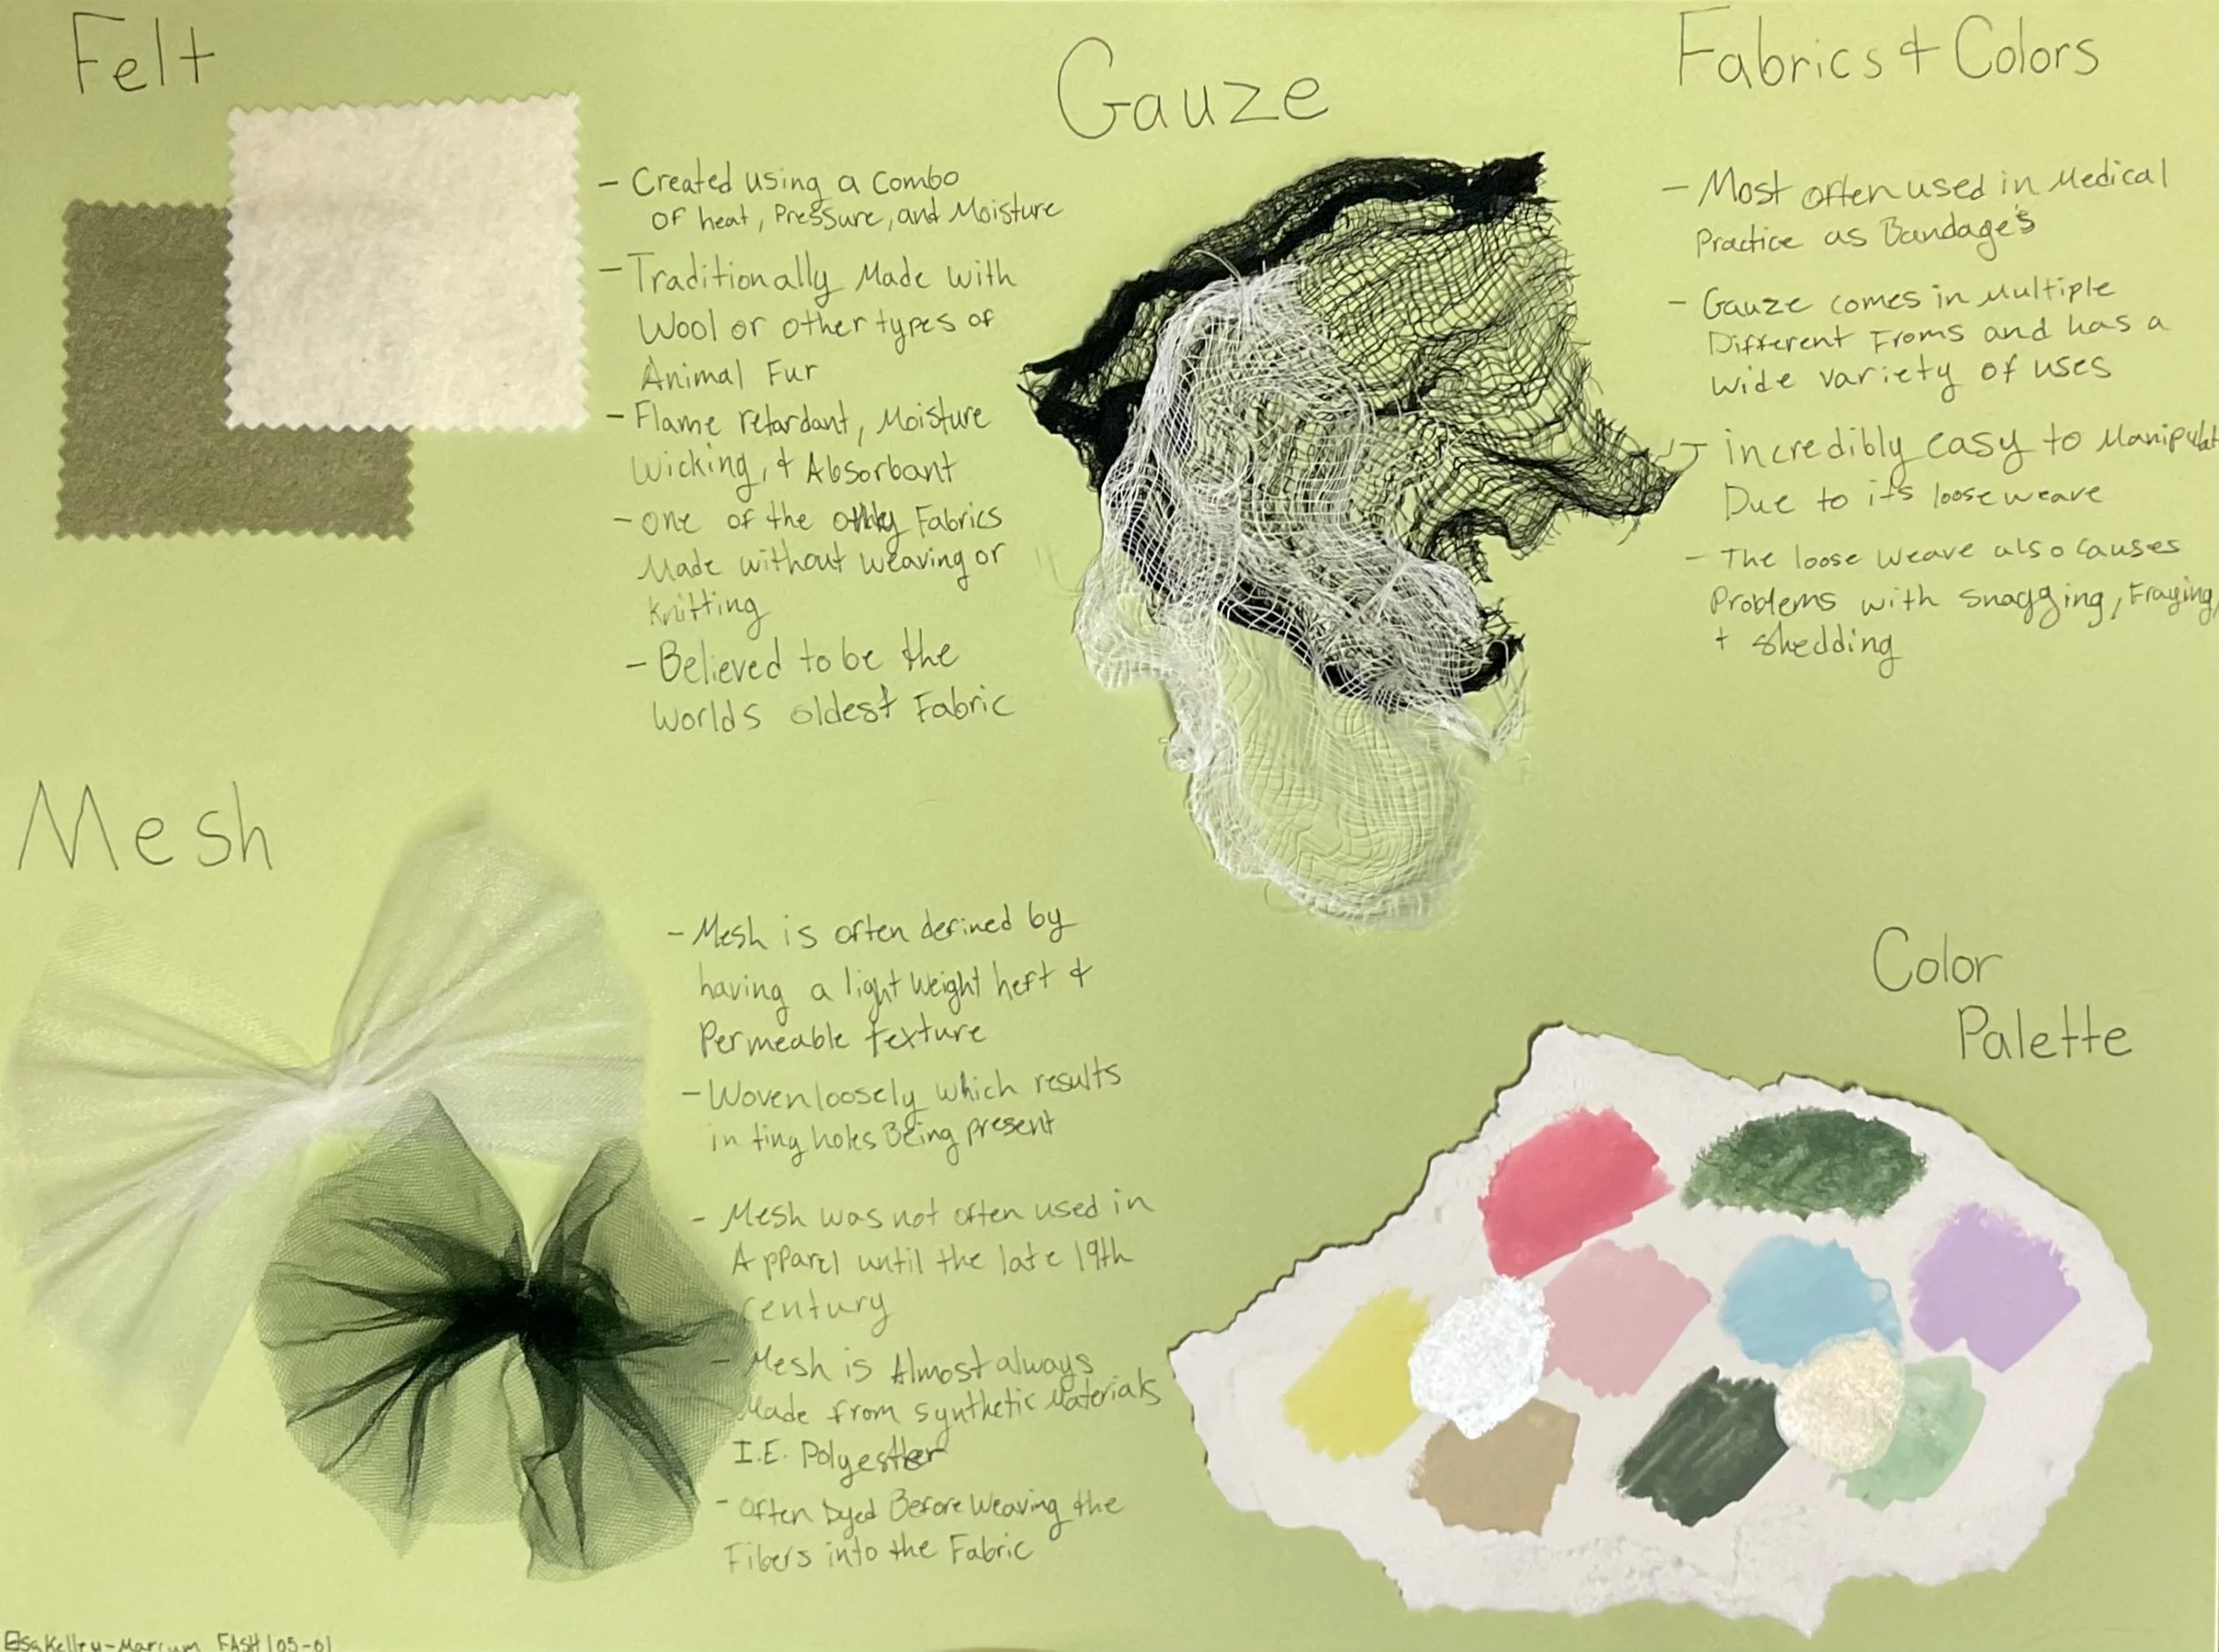 Felt
- Created using a combo
of heat, Pressure, and Moisture
- Traditionally Made with
Wool or other types of
Animal Fur
- Flame retardant, Moisture
Wicking, & Absorbant
- One of the only Fabrics
Made without weaving or
knitting
- Believed to be the
worlds oldest Fabric
Gauze
Fabrics & Colors
- Most often used in Medical
Practice as Bandage's
- Gauze comes in Multiple
Different Froms and has a
wide variety of uses
- incredibly easy to Manipulat
Due to it's loose weave
- The loose weave also causes
Problems with snagging, Fraying,
+ shedding
Mesh
- Mesh is often defined by
having a light weight heft &
Permeable texture
- Woven loosely which results
in tiny holes Being present
- Mesh was not often used in
Apparel until the late 19th
century
- Mesh is Almost always
Made from synthetic Materials
I.E. Polyester
- Often Dyed Before Weaving the
Fibers into the Fabric
Color
Palette
Kelley-Marcum FASH105-01